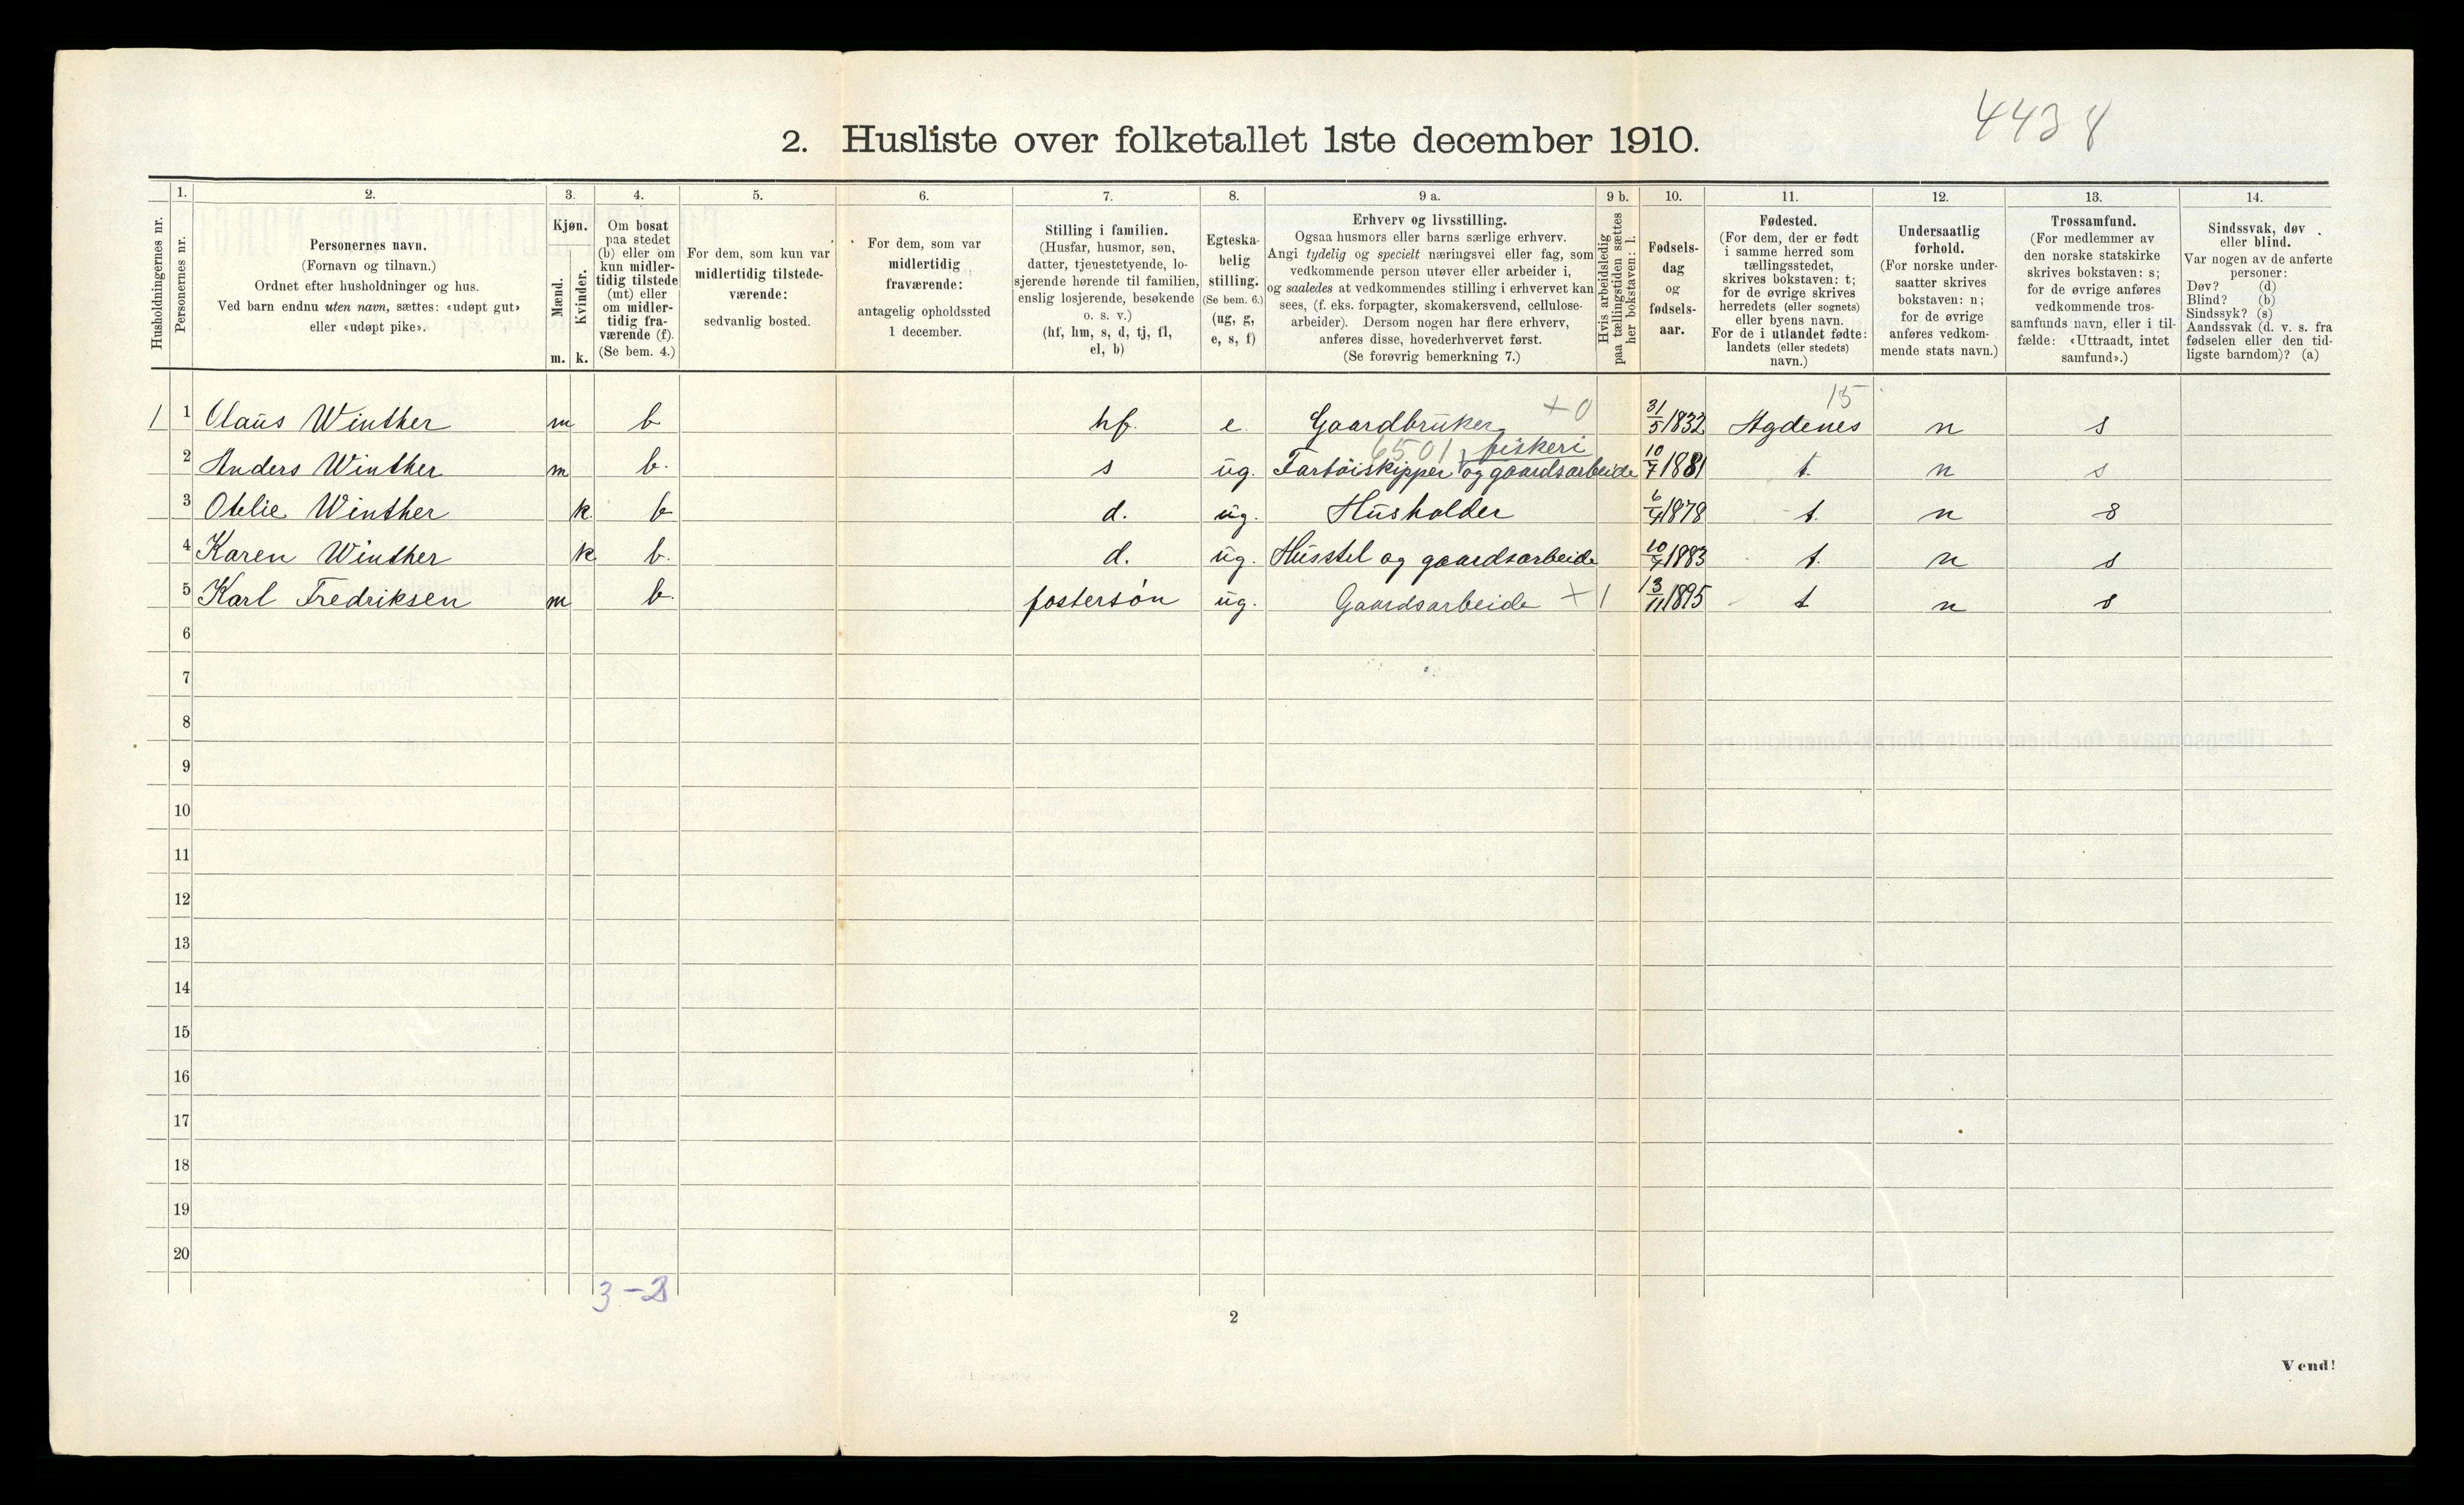 4438
2. Husliste over folketallet 1ste december 1910.
1. 2. 3. 4. 5. 6. 7. 8. 9 a. 9 b. 10. 11. 12. 13. 14.
Husholdningernes nr.
Personernes nr.
Personernes navn.
(Fornavn og tilnavn.)
Ordnet efter husholdninger og hus.
Ved barn endnu uten navn, sættes: «udøpt gut»
eller «udøpt pike».
Kjøn.
Mænd.
Kvinder.
m. k.
Om bosat
paa stedet
(b) eller om
kun midler-
tidig tilstede
(mt) eller
om midler-
tidig fra-
værende (f).
(Se bem. 4.)
For dem, som kun var
midlertidig tilstede-
værende:
sedvanlig bosted.
For dem, som var
midlertidig
fraværende:
antagelig opholdssted
1 december.
Stilling i familien.
(Husfar, husmor, søn,
datter, tjenestetyende, lo-
sjerende hørende til familien,
enslig losjerende, besøkende
o. s. v.)
(hf, hm, s, d, tj, fl,
el, b)
Egteska-
belig
stilling.
(Se bem. 6.)
(ug, g,
e, s, f)
Erhverv og livsstilling.
Ogsaa husmors eller barns særlige erhverv.
Angi tydelig og specielt næringsvei eller fag, som
vedkommende person utøver eller arbeider i,
og saaledes at vedkommendes stilling i erhvervet kan
sees, (f. eks. forpagter, skomakersvend, cellulose-
arbeider). Dersom nogen har flere erhverv,
anføres disse, hovederhvervet først.
(Se forøvrig bemerkning 7.)
Hvis arbeidsledig
paa tællingstiden sættes
her bokstaven: l.
Fødsels-
dag
og
fødsels-
aar.
Fødested.
(For dem, der er født
i samme herred som
tællingsstedet,
skrives bokstaven: t;
for de øvrige skrives
herredets (eller sognets)
eller byens navn.
For de i utlandet fødte:
landets (eller stedets)
navn.)
Undersaatlig
forhold.
(For norske under-
saatter skrives
bokstaven: n;
for de øvrige
anføres vedkom-
mende stats navn.)
Trossamfund.
(For medlemmer av
den norske statskirke
skrives bokstaven: s;
for de øvrige anføres
vedkommende tros-
samfunds navn, eller i til-
fælde: «Uttraadt, intet
samfund».)
Sindssvak, døv
eller blind.
Var nogen av de anførte
personer:
Døv? (d)
Blind? (b)
Sindssyk? (s)
Aandssvak (d. v. s. fra
fødselen eller den tid-
ligste barndom)? (a)
15
1 1 Claus Winther m b hf. e. Gaardbruker +0 31/5 1832 Agdenes n s
6501 , fiskeri
2 Anders Winther m b. s ug. Fartöiskipper og gaardsarbeide 10/7 1881 t. n s
3 Otelie Winther k. b d. ug. Husholder 6/4 1878 t. n s
4 Karen Winther k b. d. ug. Husstel og gaardsarbeide 20/4 1883 t. n s
5 Karl Fredriksen m b. fostersön ug. Gaardsarbeide +1 13/11 1895 t n s
6
7
8
9
10
11
12
13
14
15
16
17
18
19
20
3-2
2
Vend!